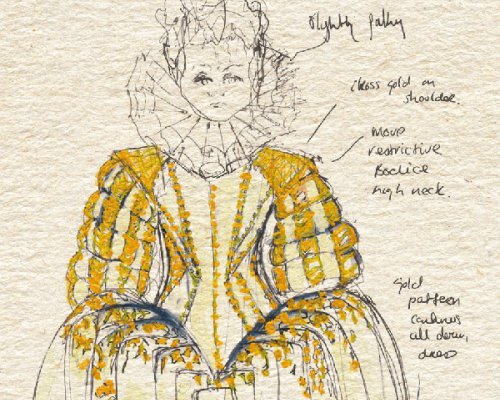 slightly
gold on
shoulder.
more
restrictive
Bodice
high neck.
Gold
pattern
continues
all down,
dress